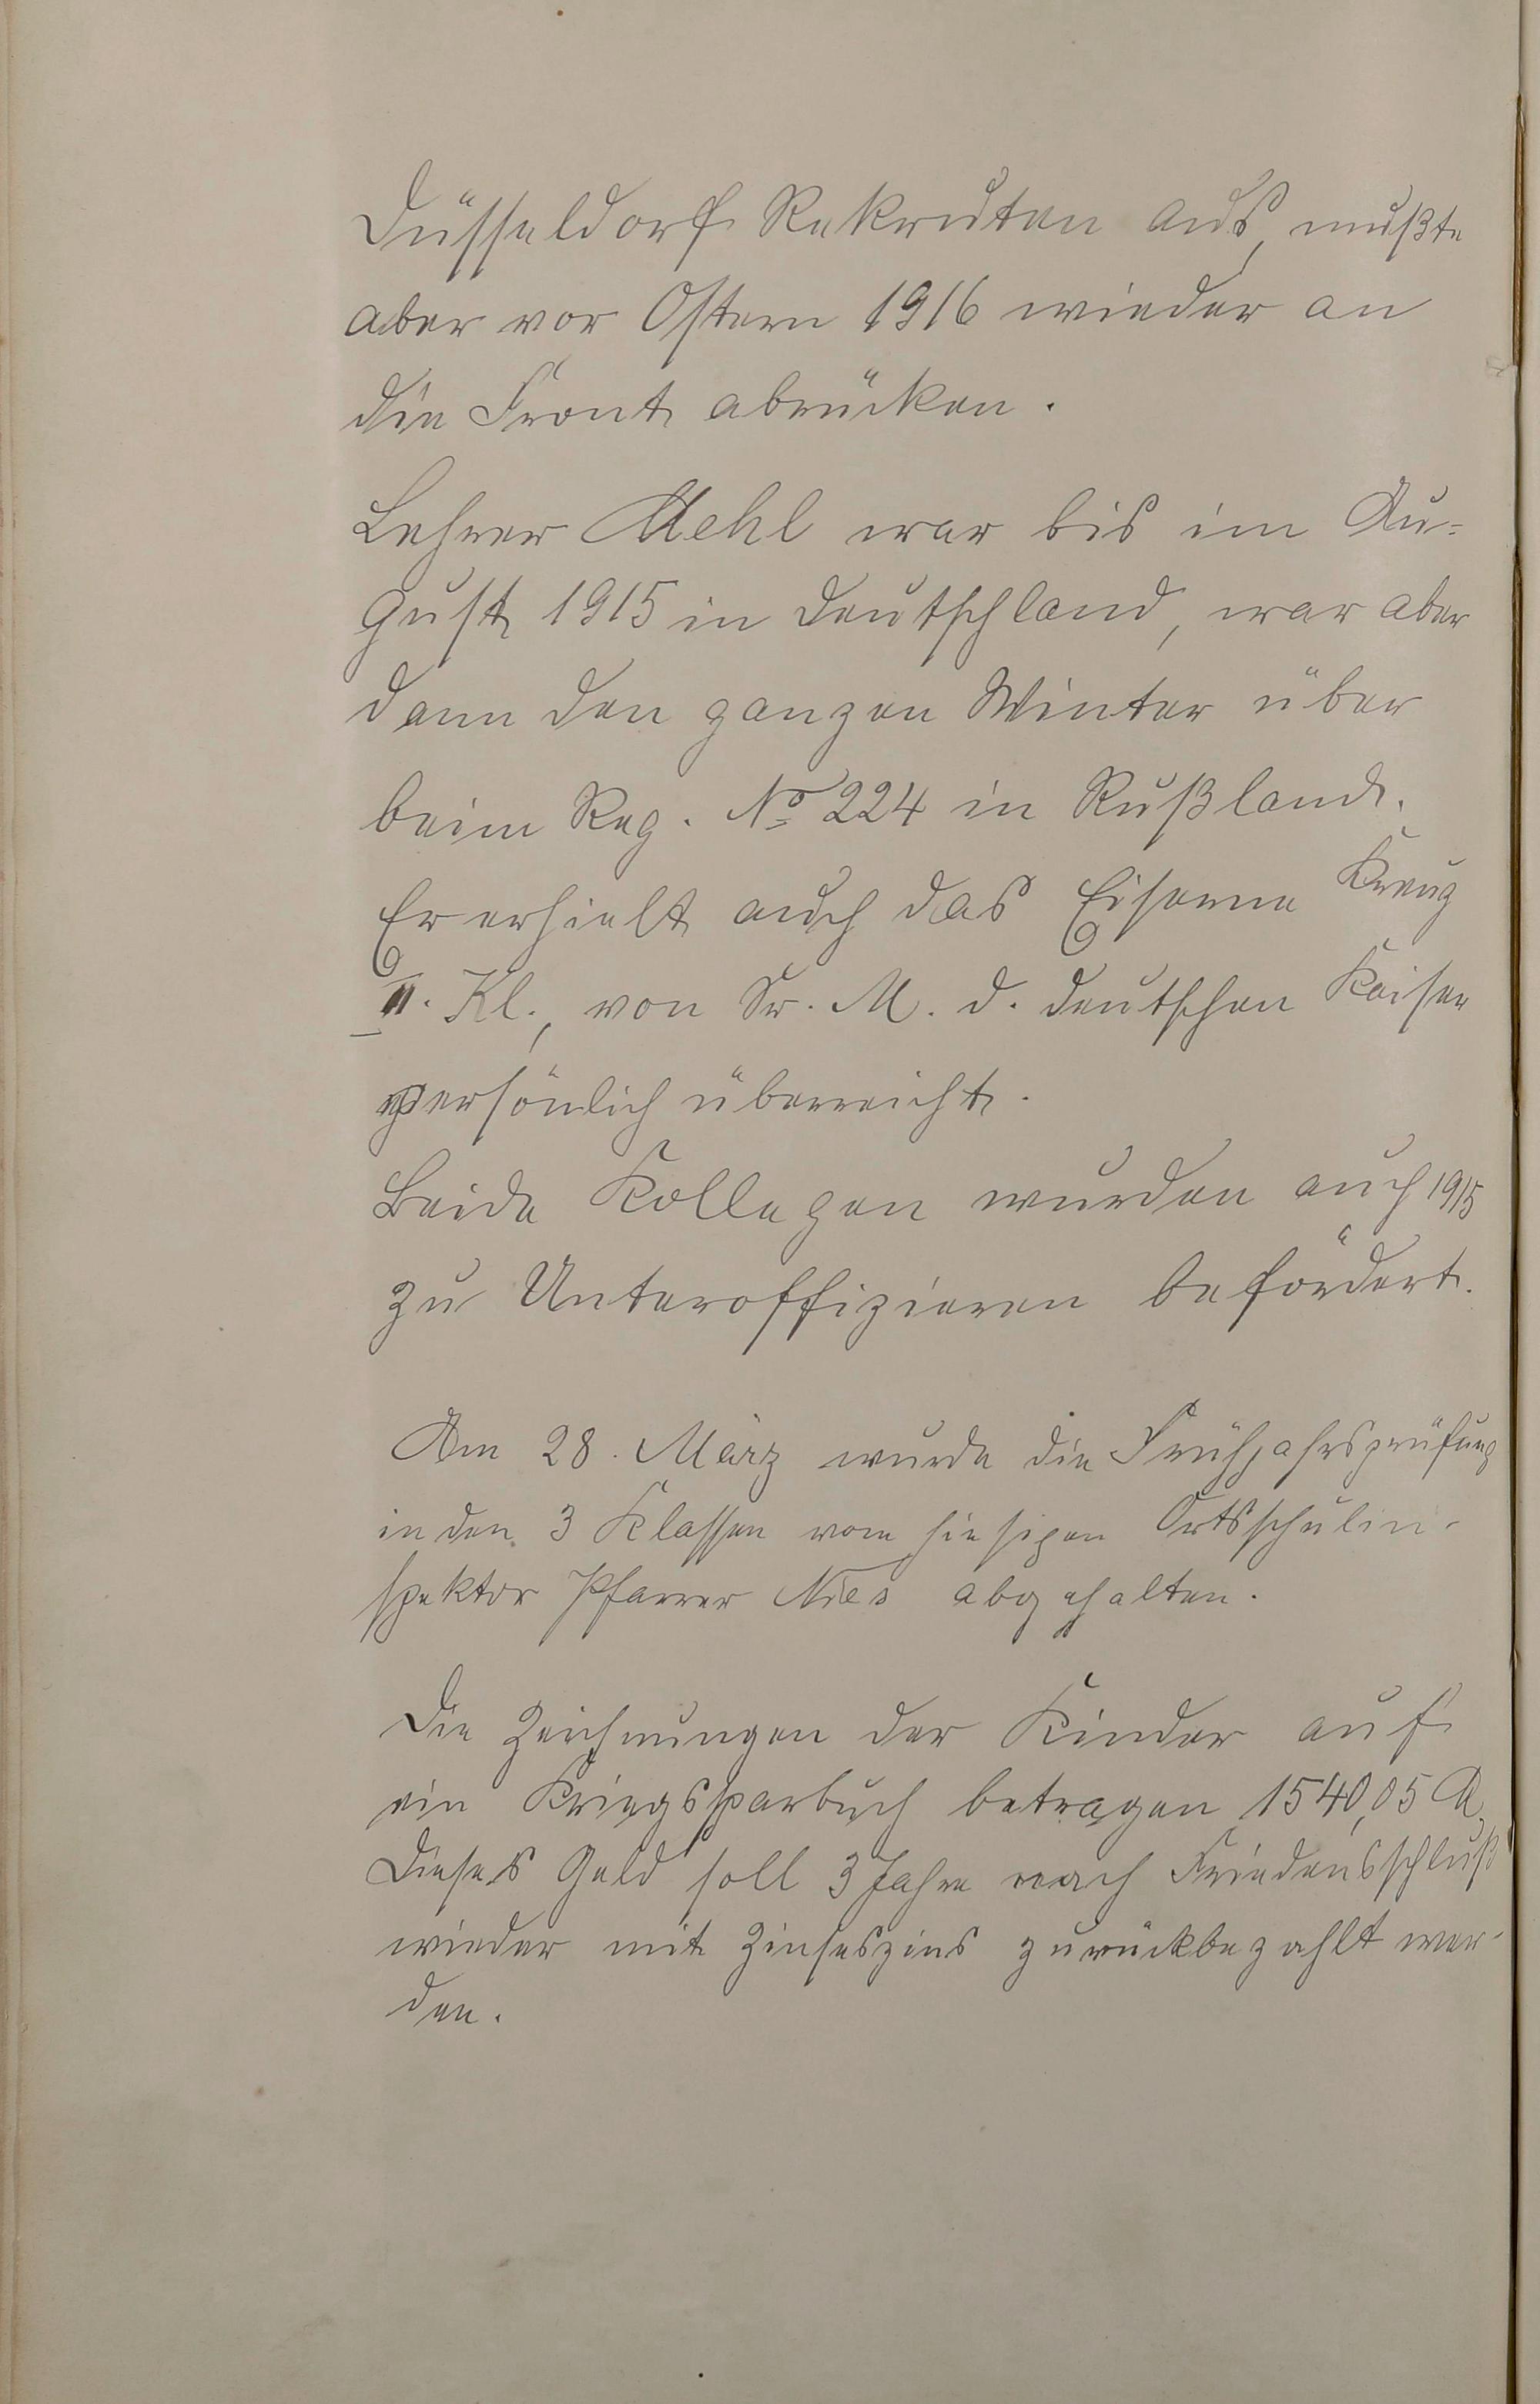 Düsseldorf Rekruten aus, mußte
aber vor Ostern 1916 wieder an
die Front abrücken.
Lehrer Mehl war bis im Au-
gust 1915 in Deutschland, war aber
dann den ganzen Winter über
beim Reg. No 224 in Rußland.
Er erhielt auch das Eiserne Kreuz
II. Kl., von Sr. M. d. deutschen Kaiser
persönlich überreicht.
Beide Kollegen wurden auch 1915
zu Unteroffizieren befördert.
Am 28. März wurde die Frühjahrsprüfung
in den 3 Klassen vom hiesigen Ortsschulin-
spektor Pfarrer Nies abgehalten.
Die Zeichnungen der Kinder auf
ein Kriegssparbuch betragen 1540,05 M.
Dieses Geld soll 3 Jahre nach Friedensschluß
wieder mit Zinseszins zurückbezahlt wer-
den.